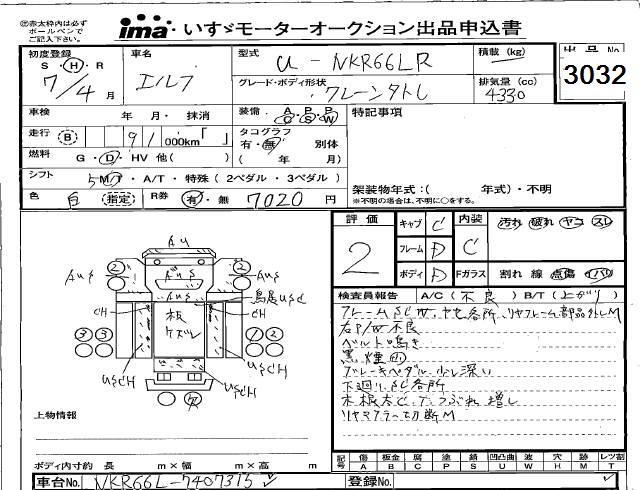 ㊟赤太枠内は必ず
ボールペンで
ご記入下さい。
ima いすゞモーターオークション出品申込書
初度登録
S・H・R
7/4月
車名
エルフ
型式
U-NKR66LR
積載(kg)
出品No
3032
グレード・ボディ形状
クレーンタトし
排気量(cc)
4330
車検 年・月・抹消
装備 A P P
C S W
特記事項
走行 B 91 000km「 」
タコグラフ
有・無 別体
( 年 月)
燃料 G・D・HV 他( )
シフト 5 M/T・A/T・特殊(2ペダル・3ペダル)
架装物年式:( 年式)・不明
※不明の場合は、不明に○をする。
色 白 (指定) R券 有・無 7020円
評価
2
キャブ C
フレーム D
ボディ D
内装
C
Fガラス
汚れ 破れ ヤコ スレ
割れ 線 点傷 イバリ
検査員報告 A/C(不良) B/T(上がり)
右P/W不良
ベルト鳴き
黒煙
ブレーキペダル少し深い
下廻りSC各所
リヤマフラー切断M
AU
2
2
AUS
AUS
AUS
鳥居USC
CH
CH
板
ケズレ
3 3
1 2
USCH
USCH
USCH
上物情報
ボディ内寸約 長 m×幅 m×高 m
記号
傷 板金 腐 塗 錆 凹凸曲 波 穴 跡 レンズ割
A B C P S U W H M T
車台No. NKR66L-7407315
登録No.